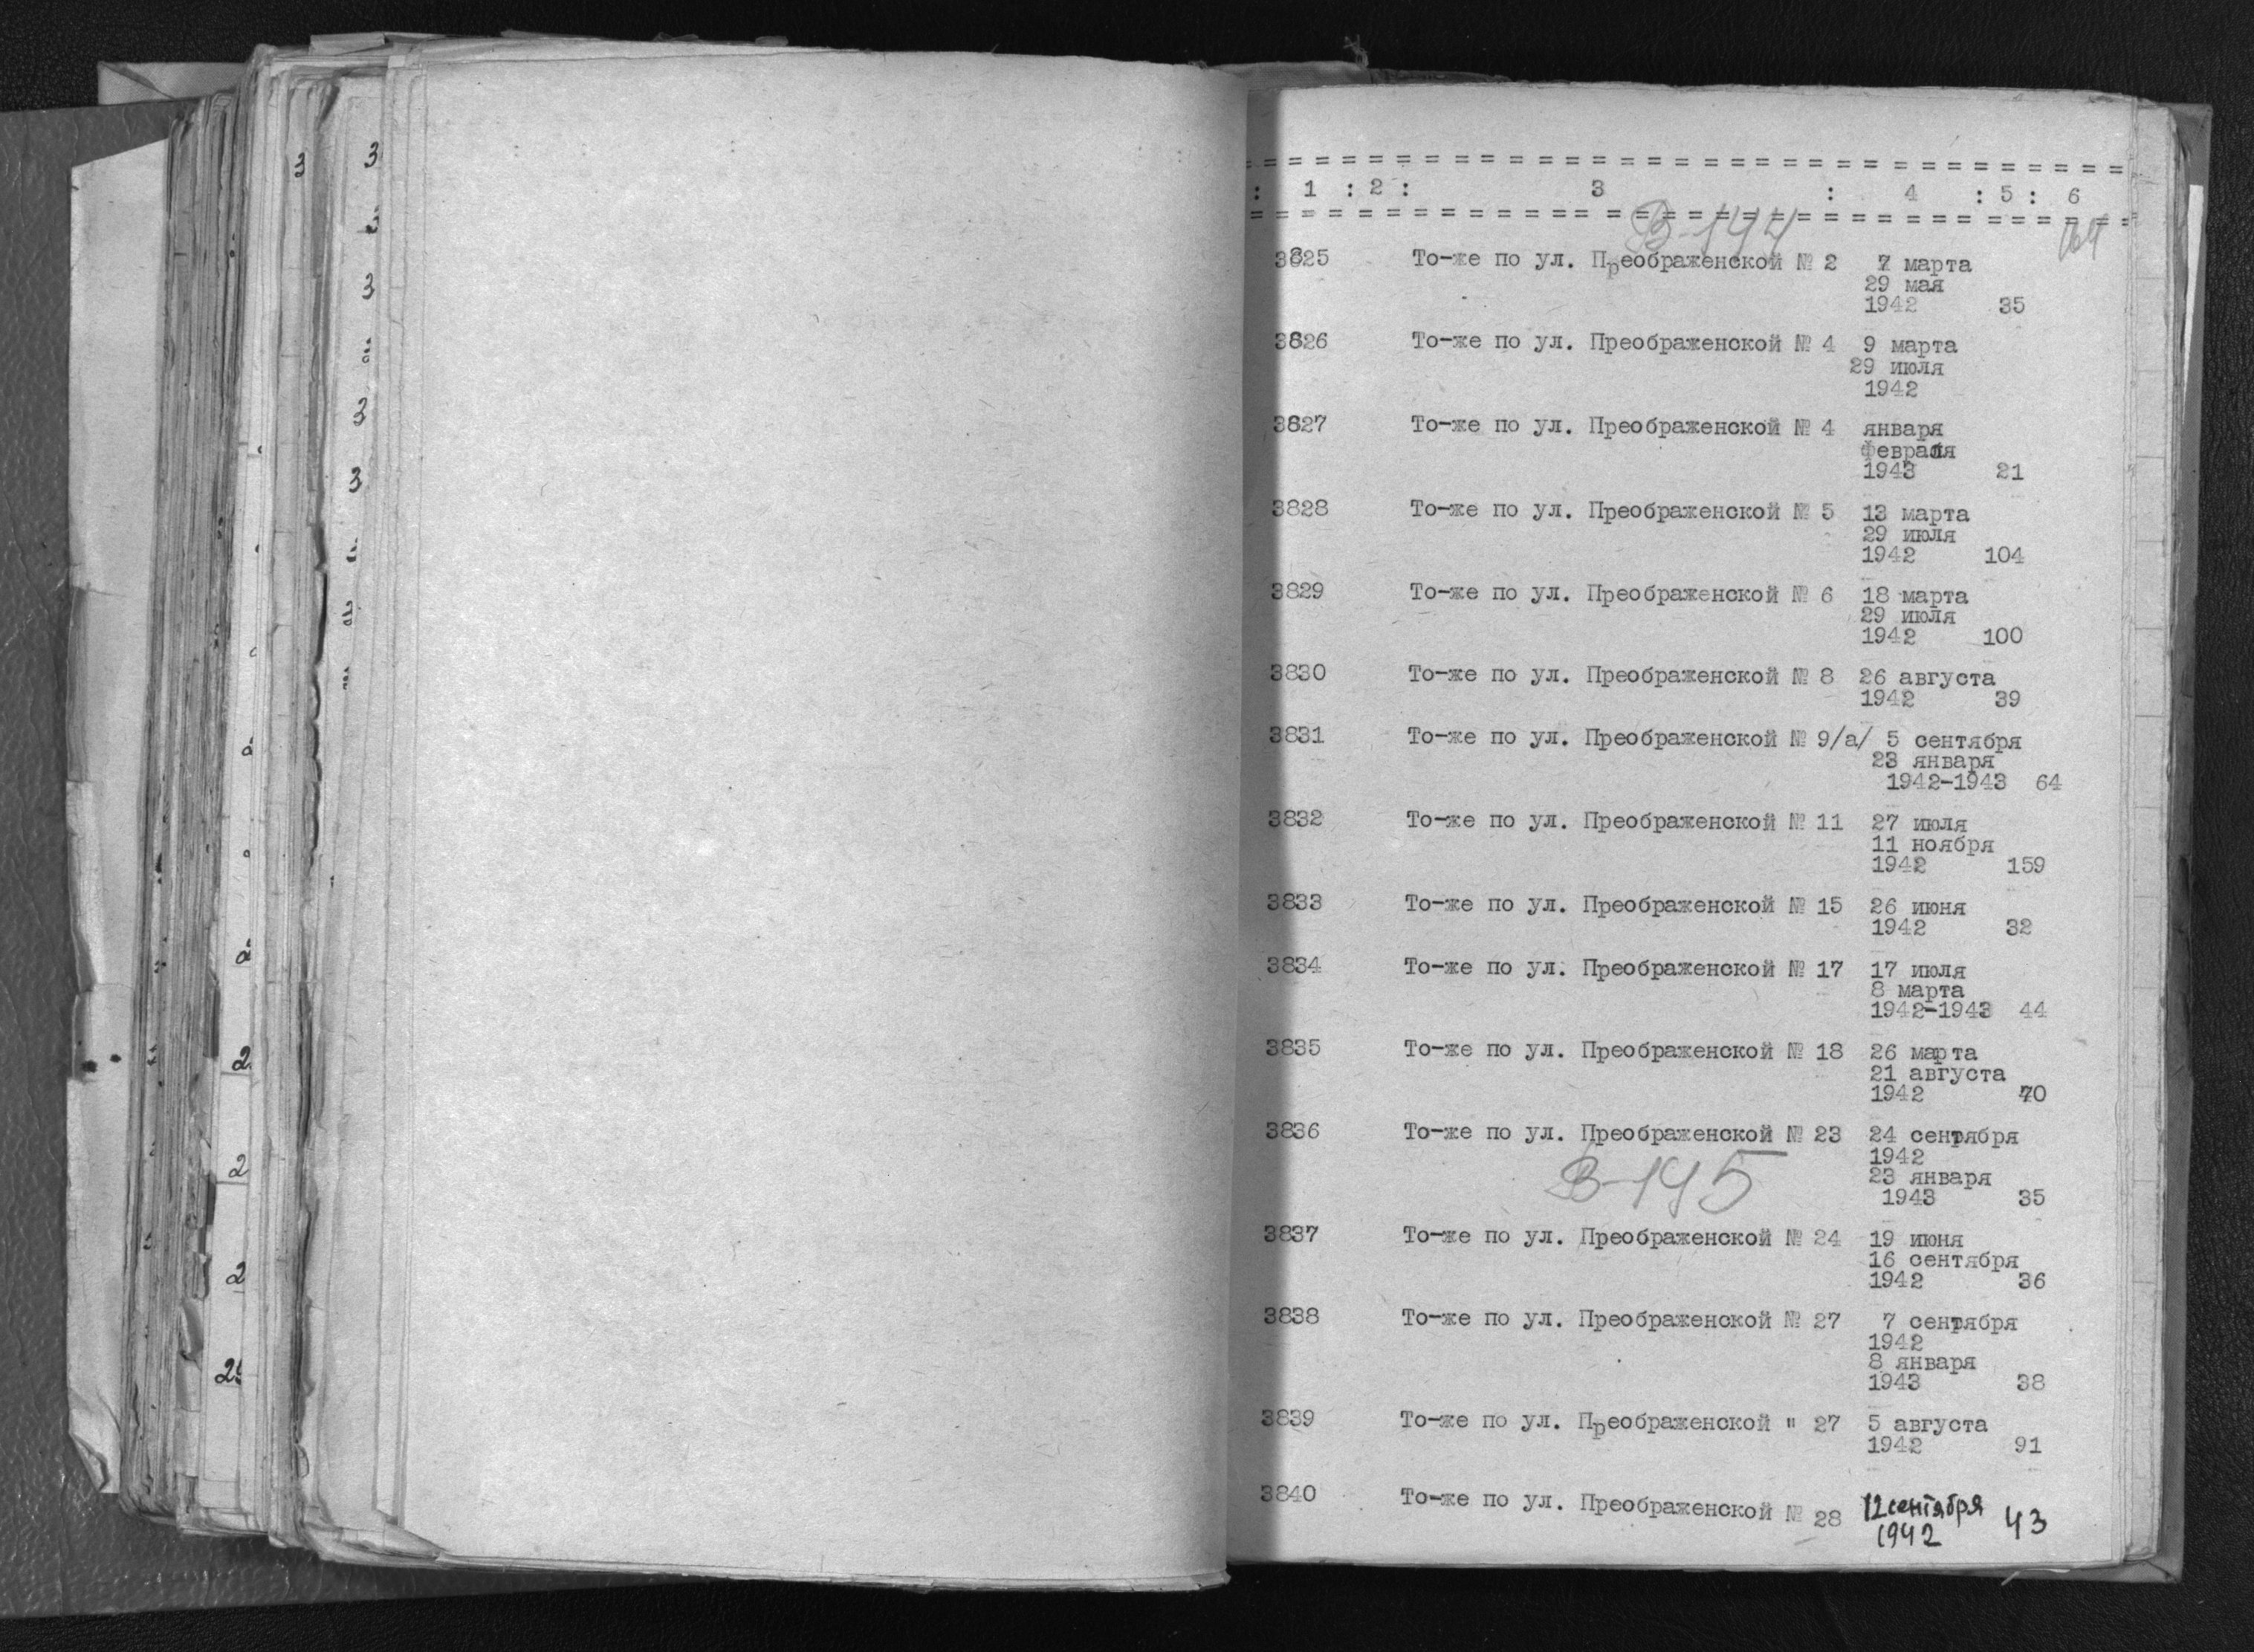 : 1 : 2 : 3 : 4 : 5 : 6
В-144
3825 То-же по ул. Преображенской № 2 7 марта
29 мая
1942 35
3826 То-же по ул. Преображенской № 4 9 марта
29 июля
1942
3827 То-же по ул. Преображенской № 4 января
февраля
1943 21
3828 То-же по ул. Преображенской № 5 13 марта
29 июля
1942 104
3829 То-же по ул. Преображенской № 6 18 марта
29 июля
1942 100
3830 То-же по ул. Преображенской № 8 26 августа
1942 39
3831 То-же по ул. Преображенской № 9/а/ 5 сентября
23 января
1942-1943 64
3832 То-же по ул. Преображенской № 11 27 июля
11 ноября
1942 159
3833 То-же по ул. Преображенской № 15 26 июня
1942 32
3834 То-же по ул. Преображенской № 17 17 июля
8 марта
1942-1943 44
3835 То-же по ул. Преображенской № 18 26 марта
21 августа
1942 70
3836 То-же по ул. Преображенской № 23 24 сентября
1942
23 января
1943 35
В-145
3837 То-же по ул. Преображенской № 24 19 июня
16 сентября
1942 36
3838 То-же по ул. Преображенской № 27 7 сентября
1942
8 января
1943 38
3839 То-же по ул. Преображенской " 27 5 августа
1942 91
3840 То-же по ул. Преображенской № 28 12 сентября
1942 43